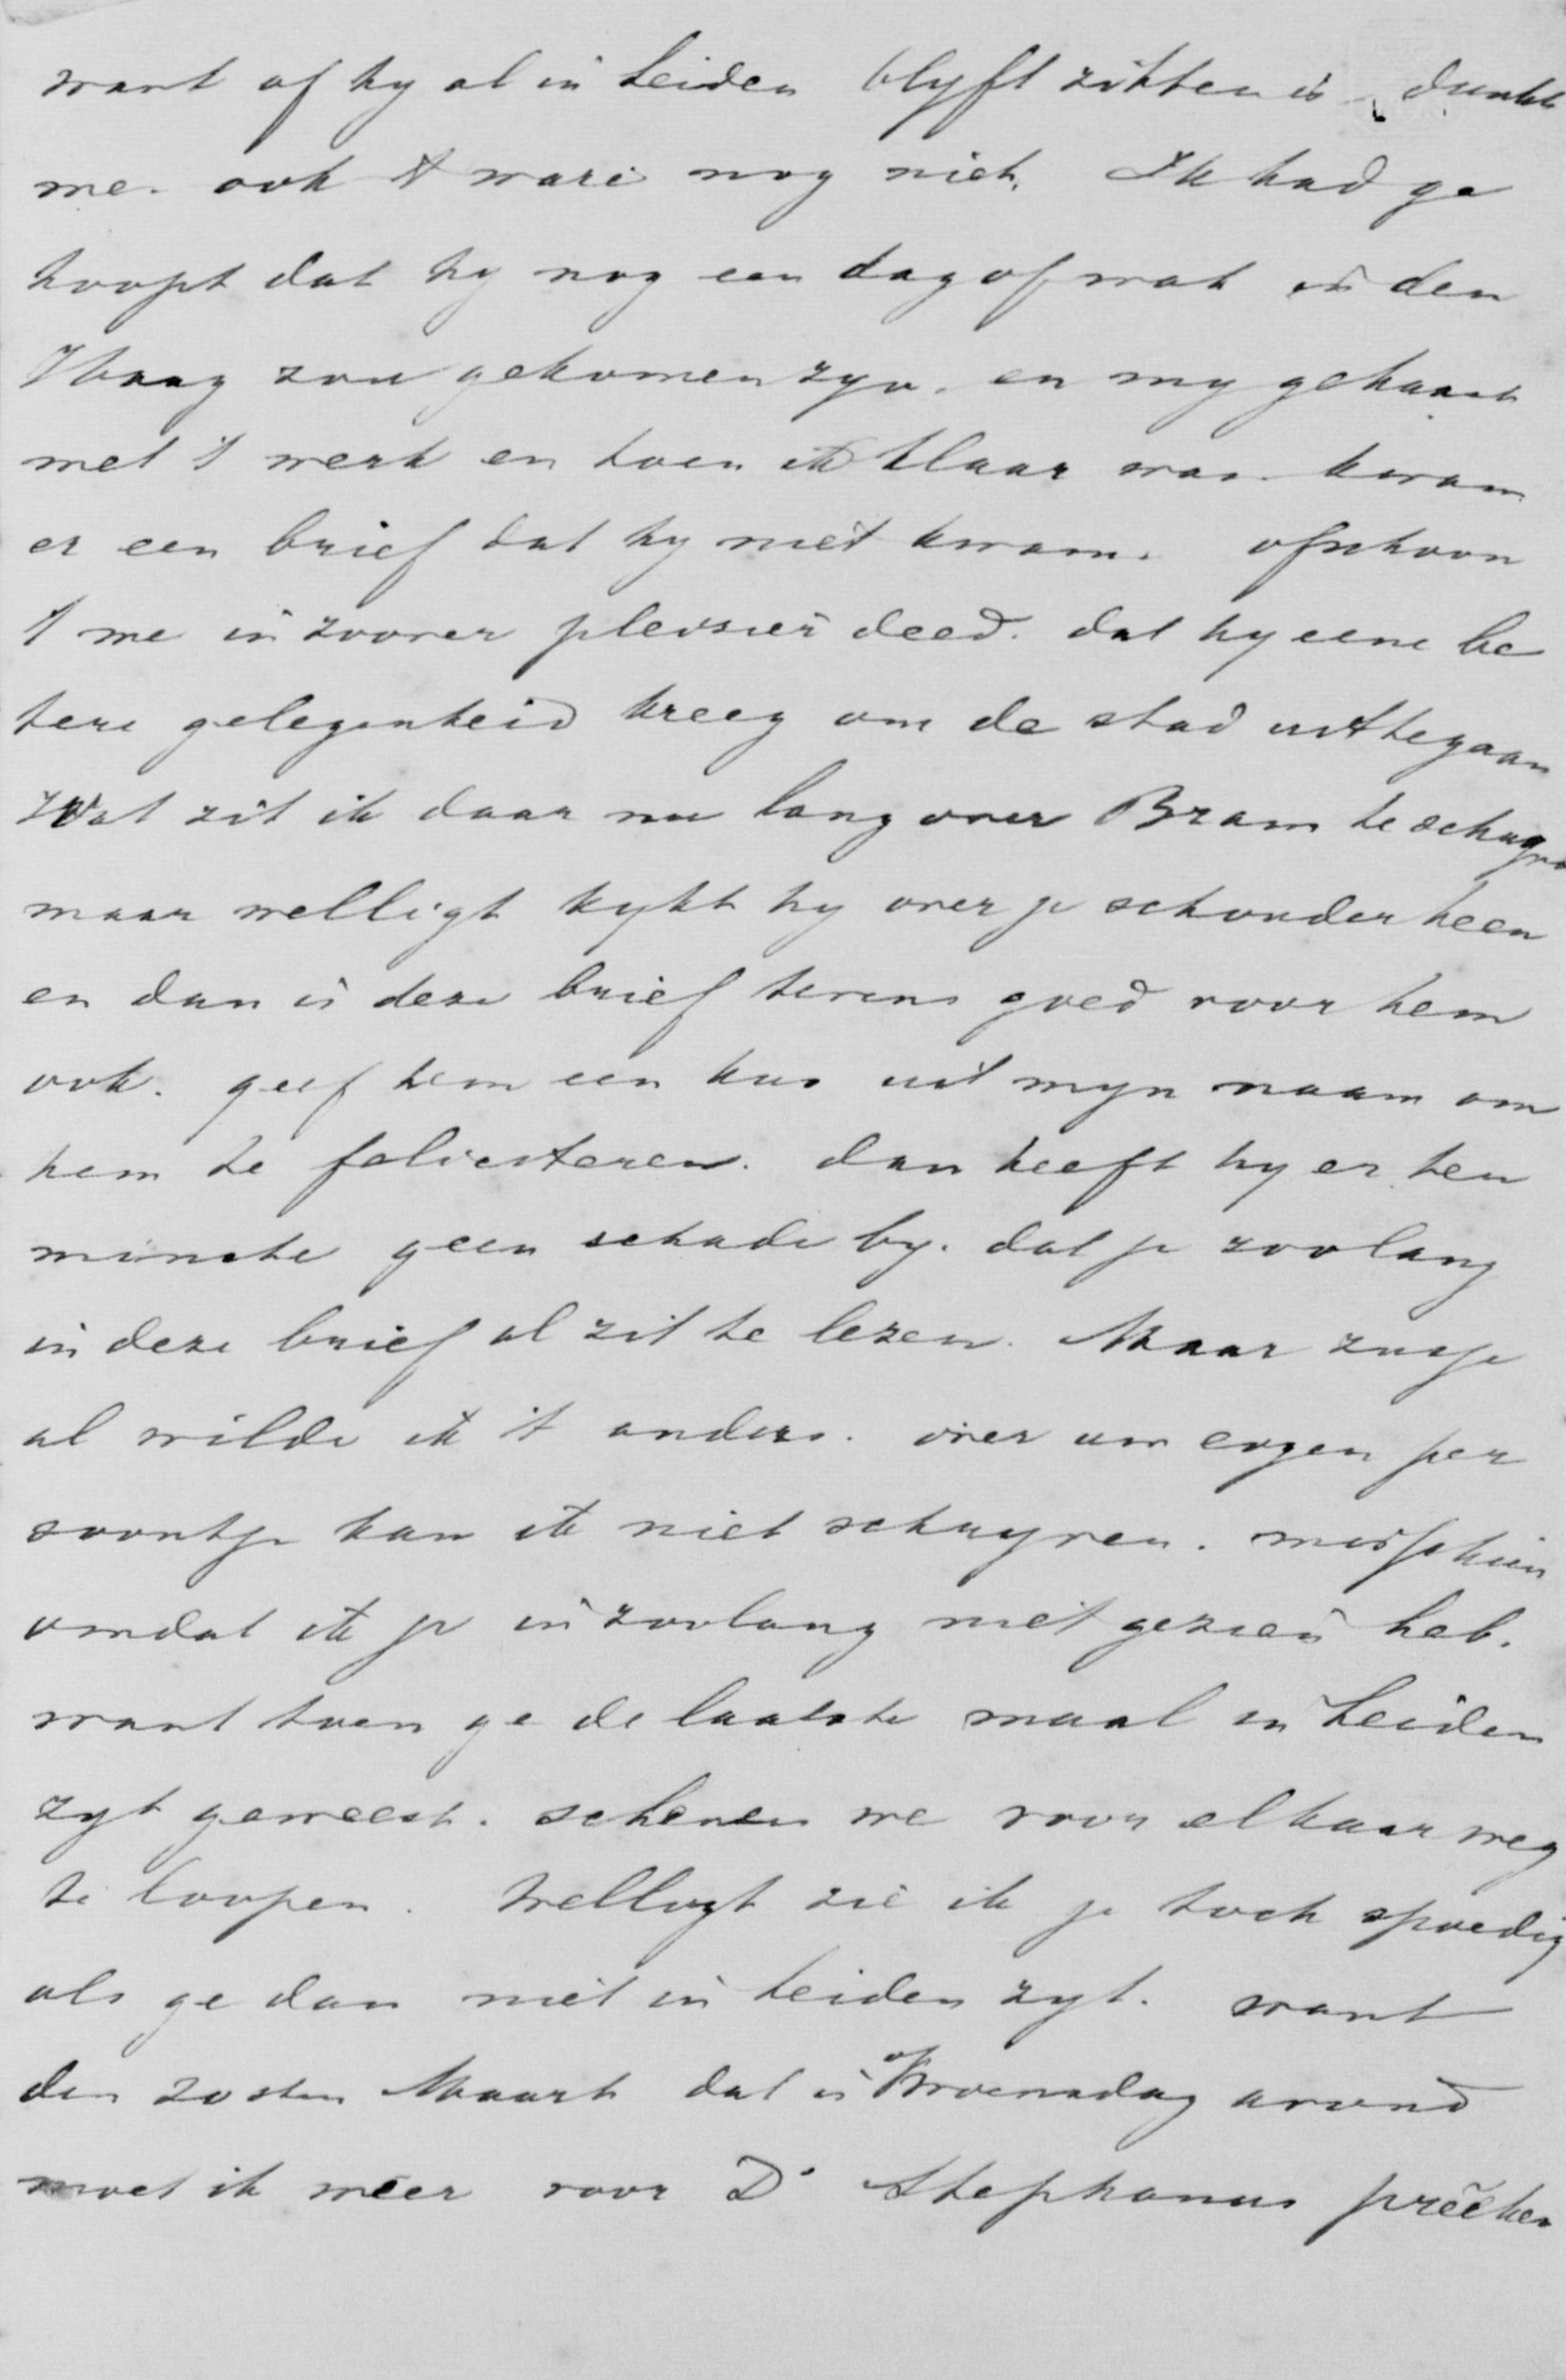 want of hy al in Leiden blyft zitten is dunkt
me. ook 't ware nog niet. Ik had ge
hoopt dat hy nog een dag of wat in den
Haag zou gekomen zyn. en my gehaast
met 't werk en toen ik klaar was kwam
er een brief dat hy niet kwam. ofschoon
't me in zoover pleisier deed. dat hy eene be
tere gelegenheid kreeg om de stad uittegaan
Wat zit ik daar nu lang over Bram te schryven
maar welligt kykt hy over je schouder heen
en dan is deze brief tevens goed voor hem
ook. geef hem een kus uit myn naam om
hem te feliciteren. dan heeft hy er ten
minste geen schade by. dat je zoolang
in deze brief al zit te lezen. Maar zusje
al wilde ik 't anders. over uw eigen per
soontje kan ik niet schryven. misschien
omdat ik je in zoolang niet gezien heb.
want toen ge de laatste maal in Leiden
zyt geweest. schenen we voor elkaar weg
te loopen. Welligt zie ik je toch spoedig
als ge dan niet in Leiden zyt. want
den 20sten Maart dat is op Woensdag avond
moet ik weer voor Ds Stephanus preêken